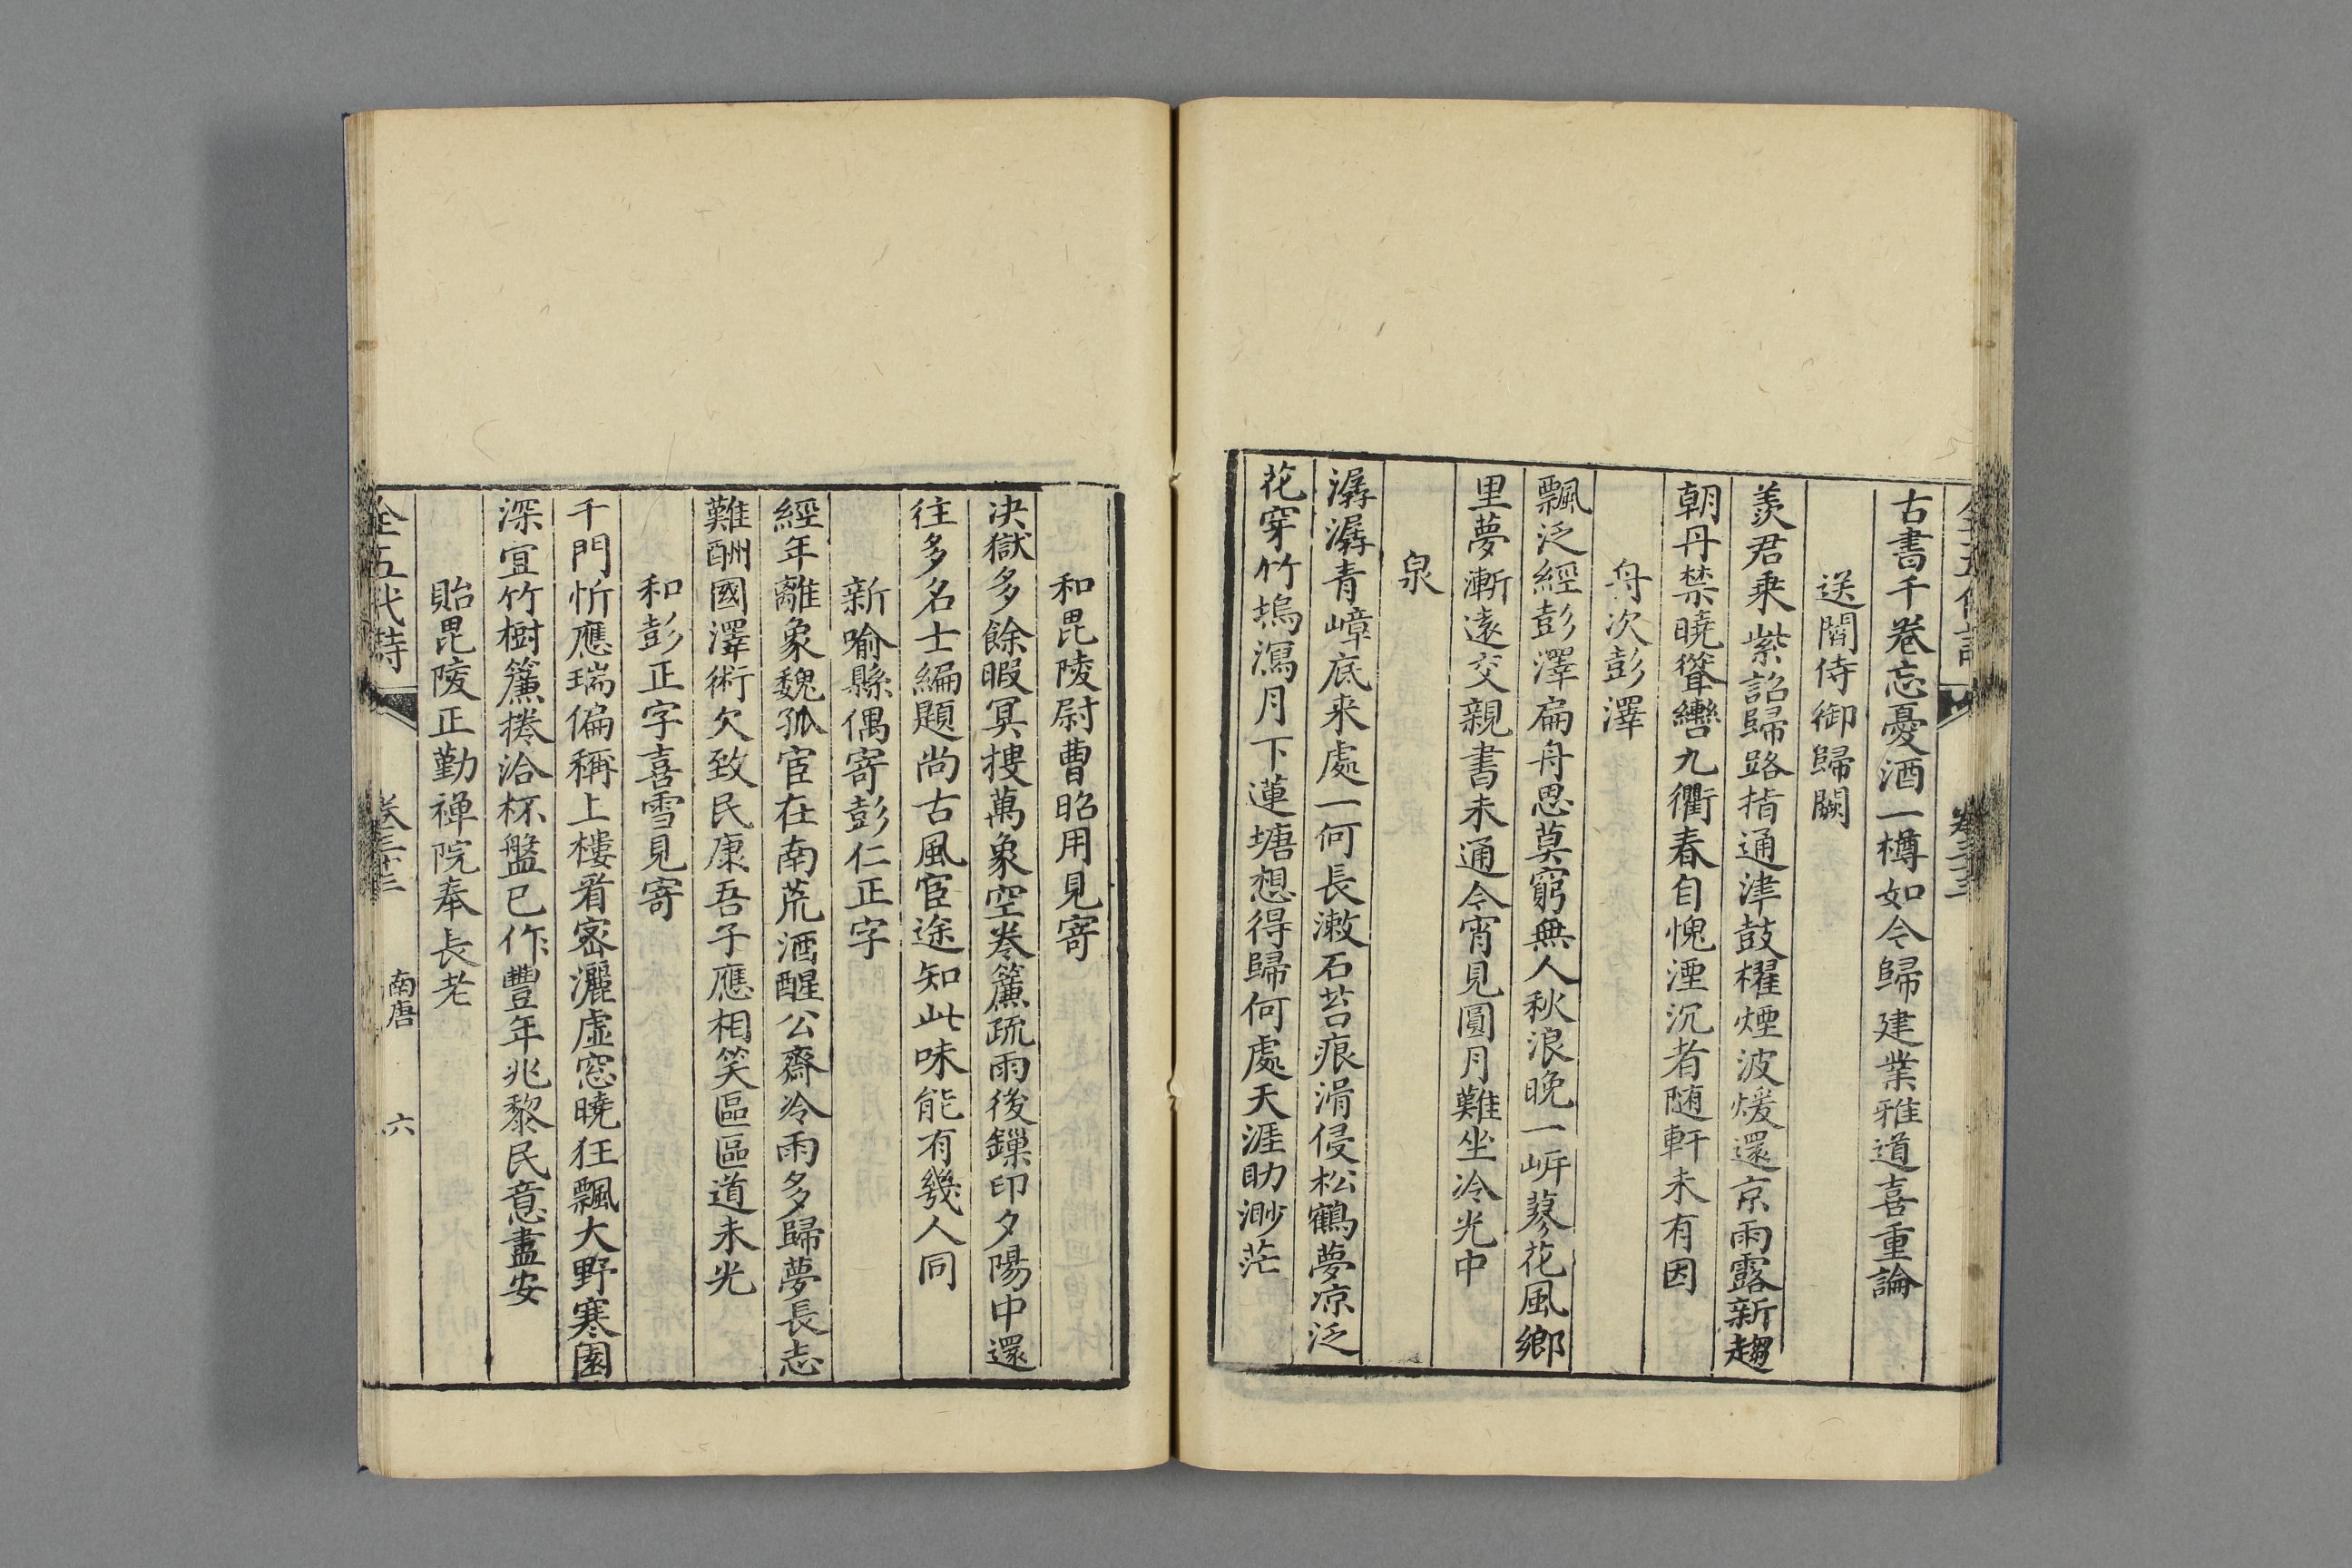 古書千卷忘憂酒一樽如今歸建業雅道喜重論
送閻侍御歸闕
羨君乗紫詔歸路指通津鼓櫂煙波煖還京雨露新趨
朝丹禁曉聳轡九衢春自愧湮沉者随軒未有因
舟次彭澤
飄泛經彭澤扁舟思莫窮無人秋浪晚一岍蓼花風鄉
里夢漸遠交親書未通今宵見圓月難坐冷光中
泉
潺潺青嶂底来處一何長漱石苔痕滑侵松鶴夢凉泛
花穿竹塢瀉月下蓮塘想得歸何處天涯助渺茫
和毘陵尉曹昭用見寄
决獄多餘暇冥搜萬象空卷簾疏雨後鏁印夕陽中還
往多名士編題尚古風宦途知此味能有幾人同
新喻縣偶寄彭仁正字
經年離象魏孤宦在南荒酒醒公齋冷雨多歸夢長志
難酬國澤術欠致民康吾子應相笑區區道未光
和彭正字喜雪見寄
千門忻應瑞偏稱上樓看密灑虛窓曉狂飄大野寒園
深宜竹樹簾捲洽杯盤已作豐年兆黎民意盡安
貽毘陵正勤禅院奉長老
全五代詩
卷三十三
南唐
六